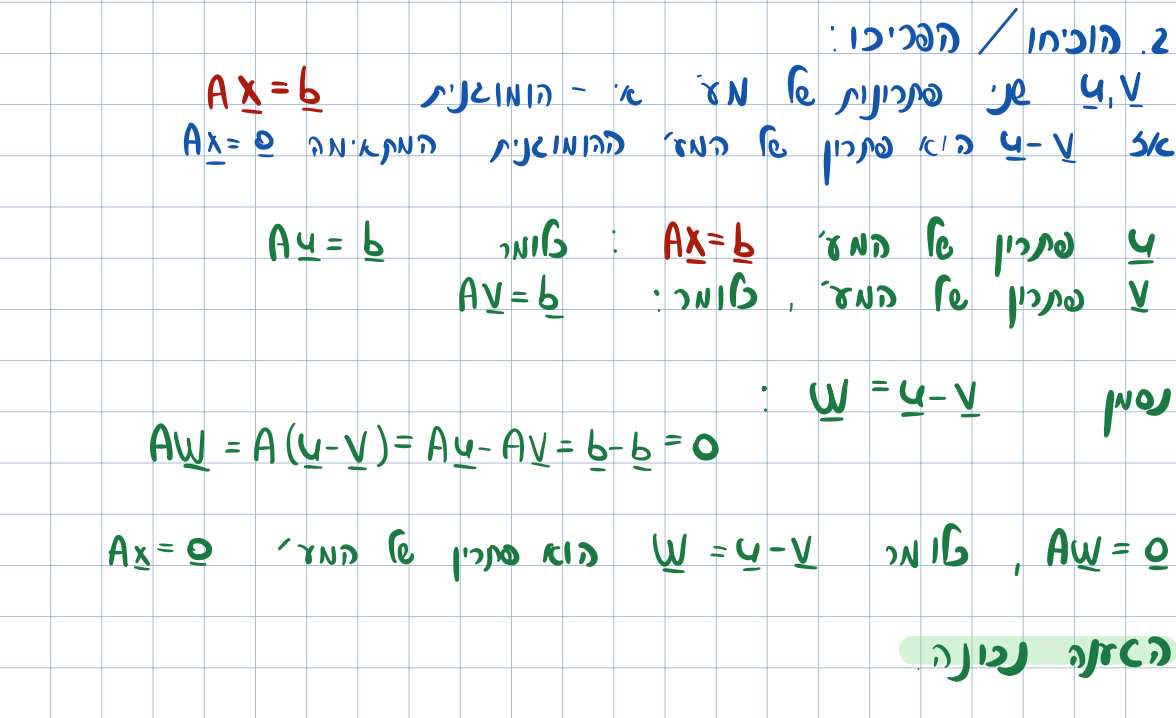 2. הוכיחו / הפריכו:
u, v שני פתרונות של מע' אי - הומוגנית Ax = b
אז u - v הוא פתרון של המע' ההומוגנית המתאימה Ax = 0
u פתרון של המע' Ax = b : כלומר Au = b
v פתרון של המע', כלומר: Av = b
נסמן w = u - v :
Aw = A(u - v) = Au - Av = b - b = 0
Aw = 0, כלומר w = u - v הוא פתרון של המע' Ax = 0
הטענה נכונה.